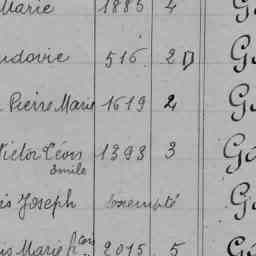 Marie 1885 4 G
udovic 516 2 G
Pierre Marie 1619 2 G
Victor Léon 1393 3 G
Emile
is Joseph exempté G
is Marie fçois 2015 5 G